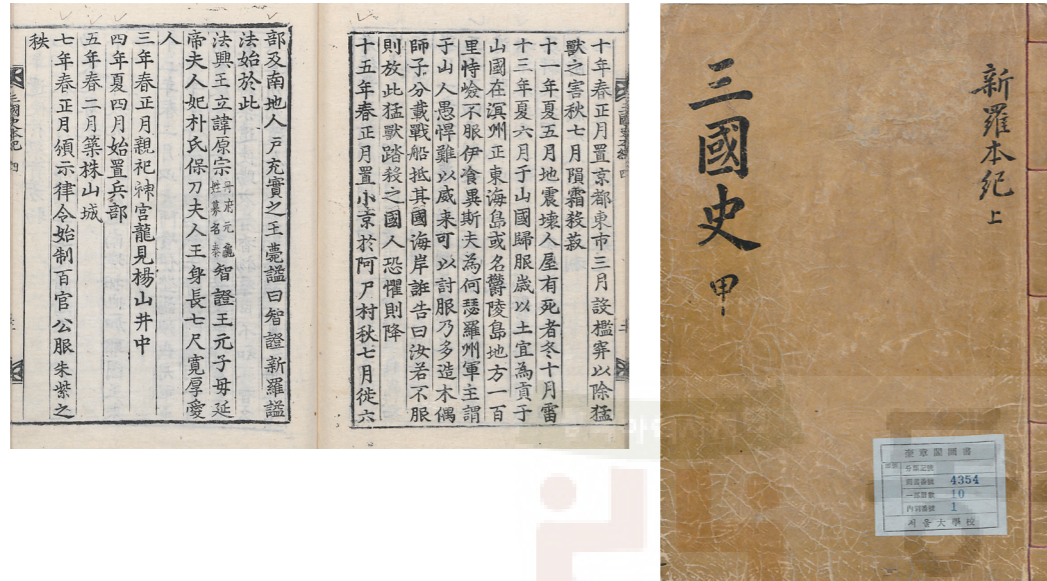 十年春正月置京都東市三月設檻穽以除猛
獸之害秋七月隕霜殺菽
十一年夏五月地震壞人屋有死者冬十月雷
十三年夏六月于山國歸服歲以土宜為貢于
山國在溟州正東海島或名鬱陵島地方一百
里恃嶮不服伊飡異斯夫為何瑟羅州軍主謂
于山人愚悍難以威来可以計服乃多造木偶
師子分載戰船抵其國海岸誑告曰汝若不服
則放此猛獸踏殺之國人恐懼則降
十五年春正月置小京於阿尸村秋七月徙六
部及南地人戶充實之王薨諡曰智證新羅諡
法始於此
法興王立諱原宗冊府元龜姓募名秦智證王元子母延
帝夫人妃朴氏保刀夫人王身長七尺寬厚愛
人
三年春正月親祀神宮龍見楊山井中
四年夏四月始置兵部
五年春二月築株山城
七年春正月頒示律令始制百官公服朱紫之
秩
新羅本紀上
三國史 甲
奎章閣圖書
圖書番號 4354
一部冊數 10
內冊番號 1
서울大學校